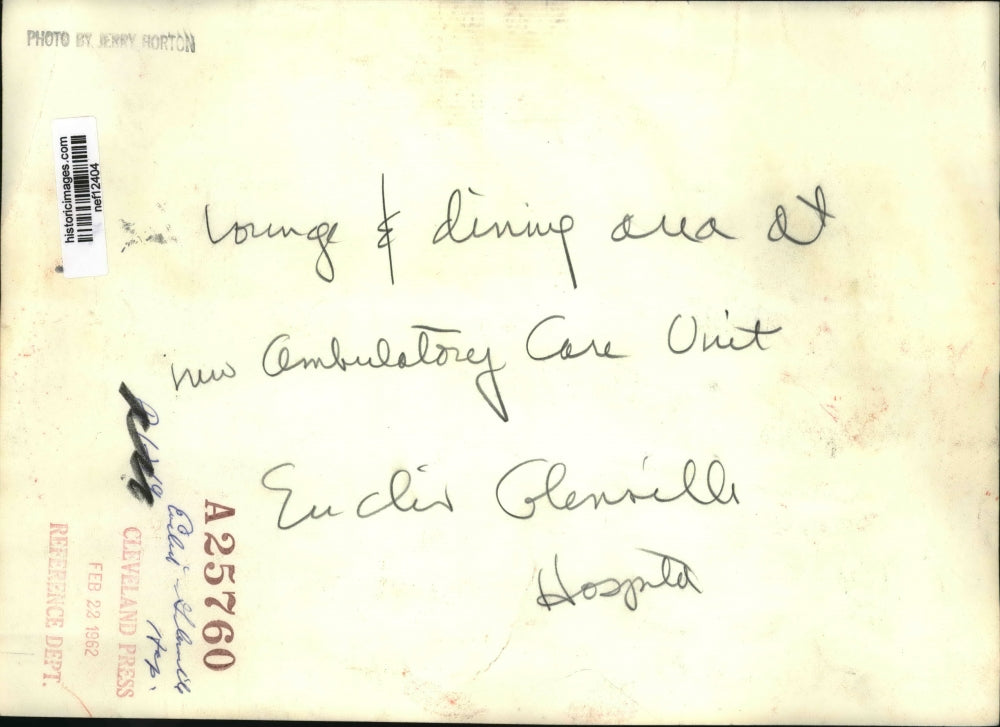 PHOTO BY JERRY HORTON
historicimages.com
nef12404
Lounge & dining area at
new Ambulatory Care Unit
Euclid Glenville
Hospital
A25760
Euclid - Glenville
Hosp.
CLEVELAND PRESS
FEB 22 1962
REFERENCE DEPT.